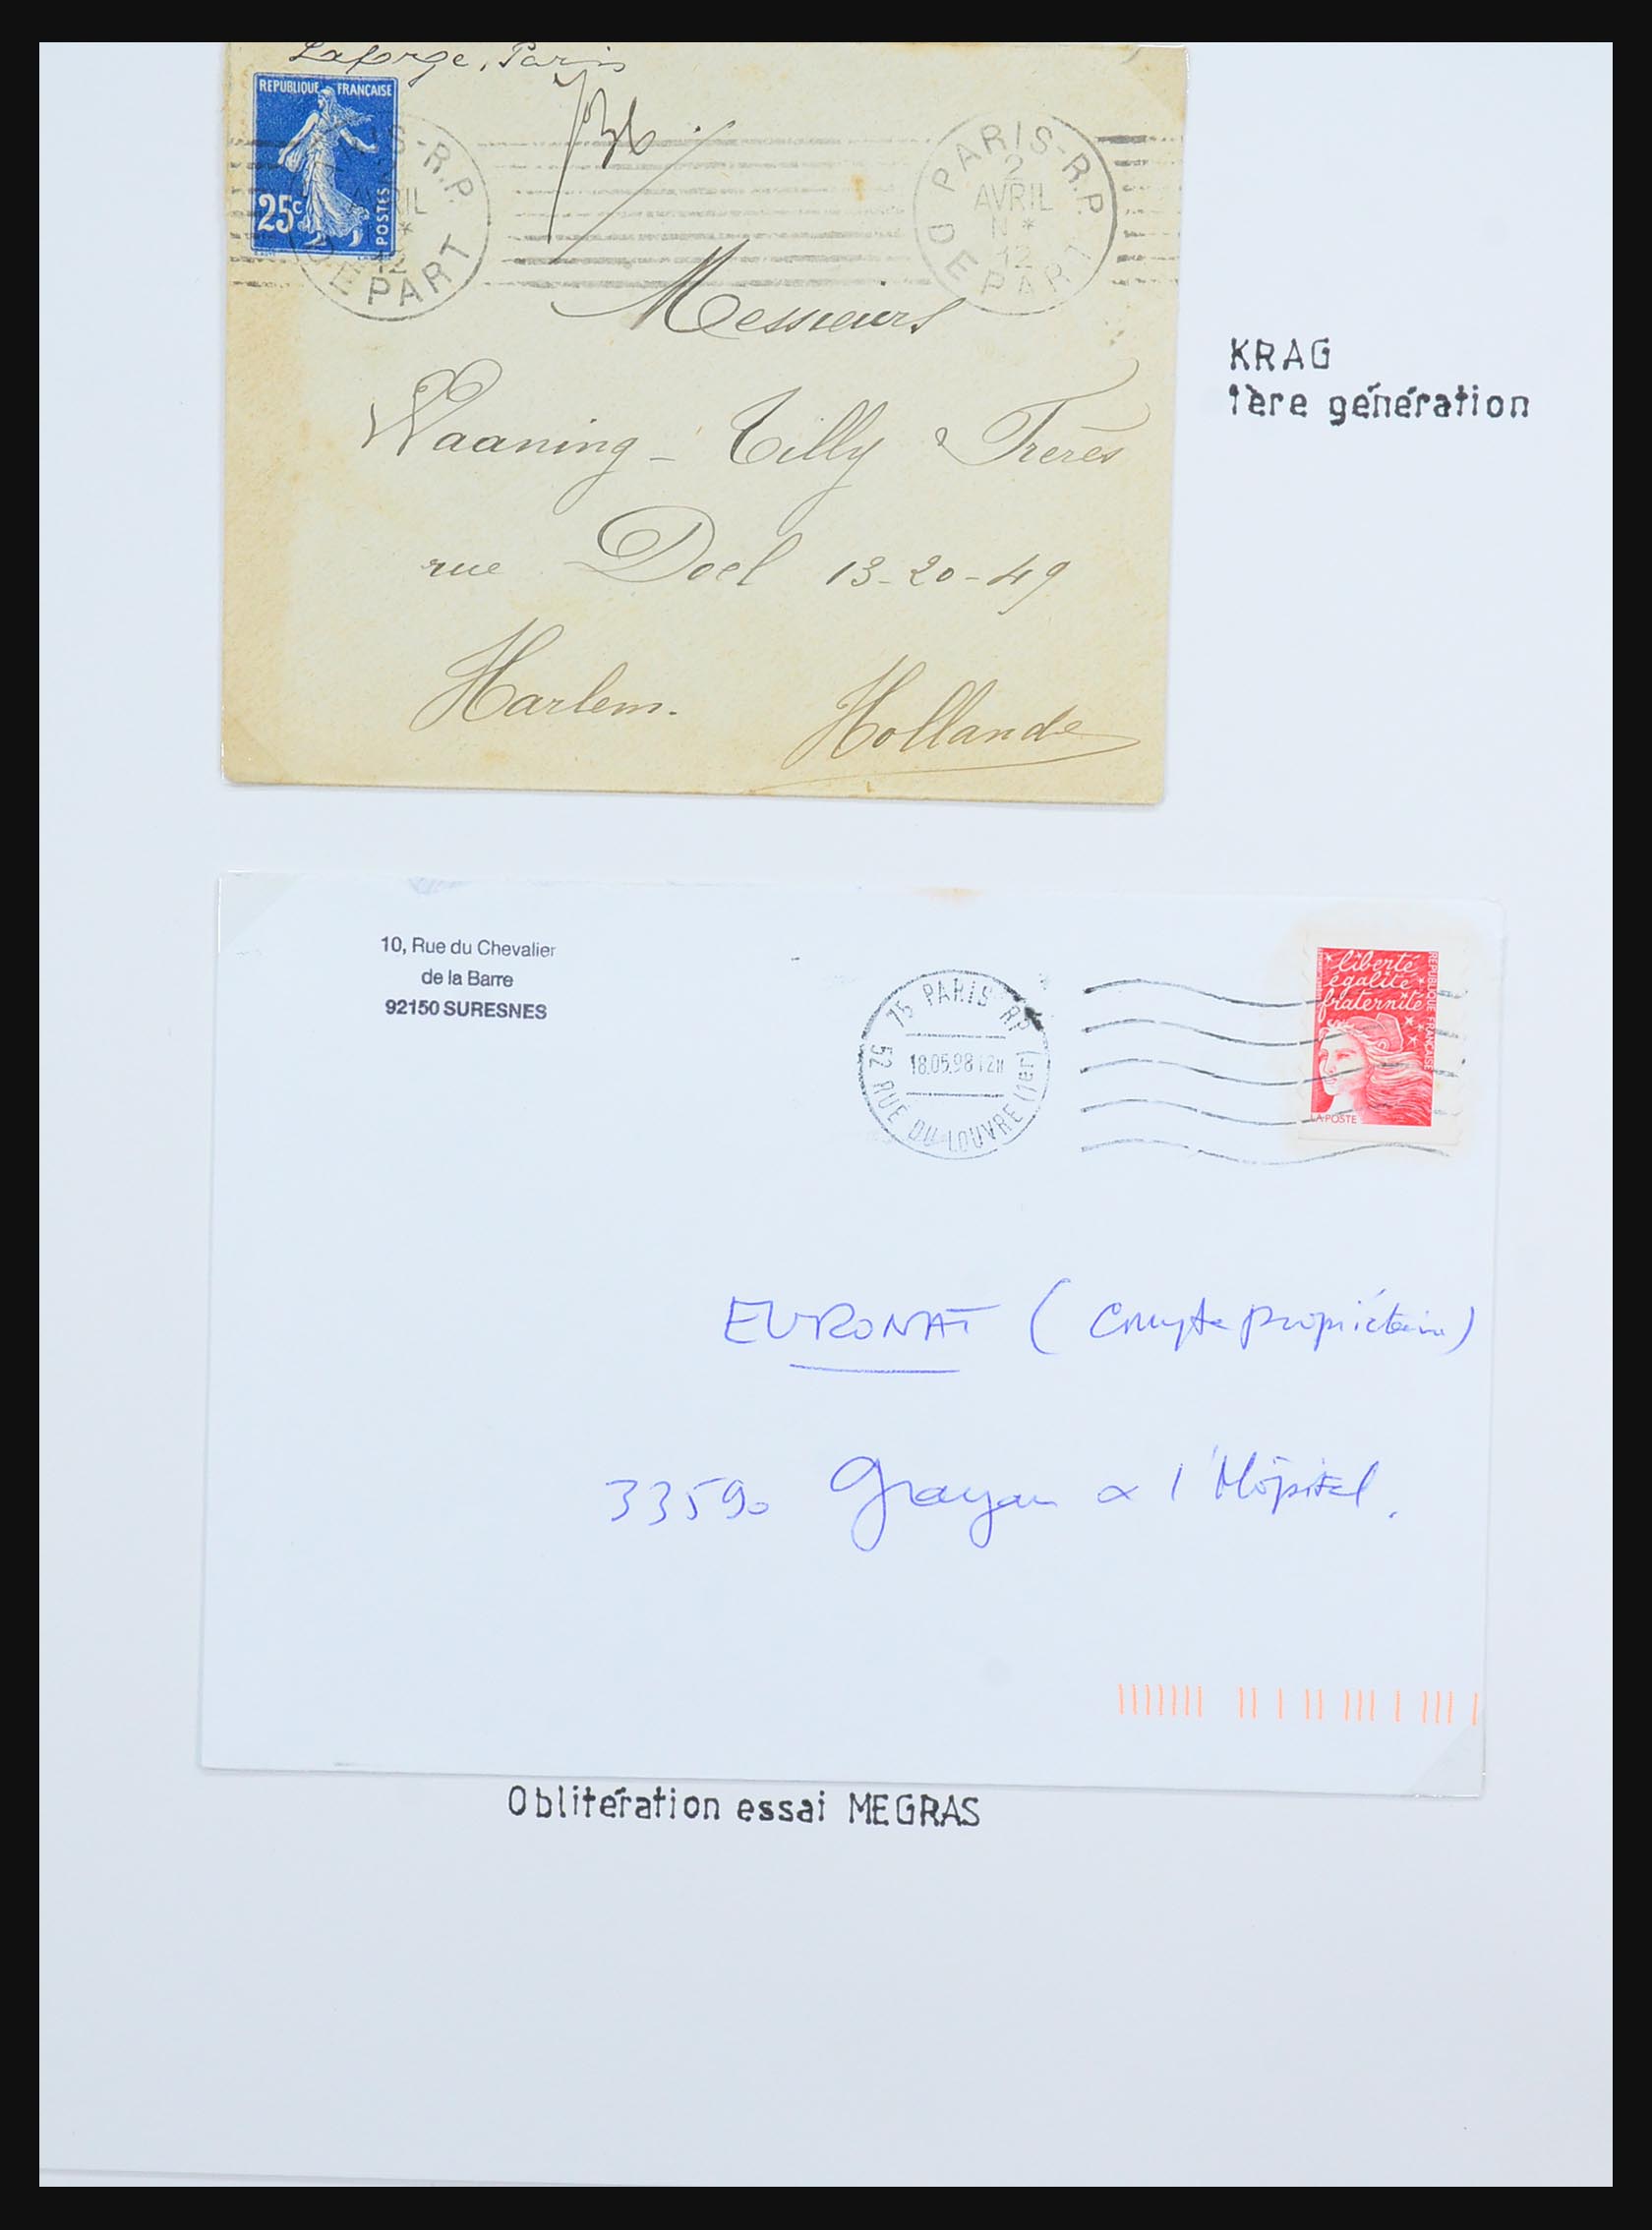 Laforge, Paris
REPUBLIQUE FRANÇAISE
25c
POSTES
PARIS-R.P.
AVRIL
*
12
DEPART
PARIS-R.P.
2
AVRIL
N*
12
DEPART
Messieurs
Waaning-Tilly & Frères
rue Doel 13-20-49
Harlem.
Hollande
KRAG
1ère génération
10, Rue du Chevalier
de la Barre
92150 SURESNES
75 PARIS RP
18.05.98 12H
52 RUE DU LOUVRE (1er)
liberté
égalité
fraternité
REPUBLIQUE FRANÇAISE
LA POSTE
EURONAT (Compte propriétaire)
33590 Grayan & l'Hôpital.
Oblitération essai MEGRAS